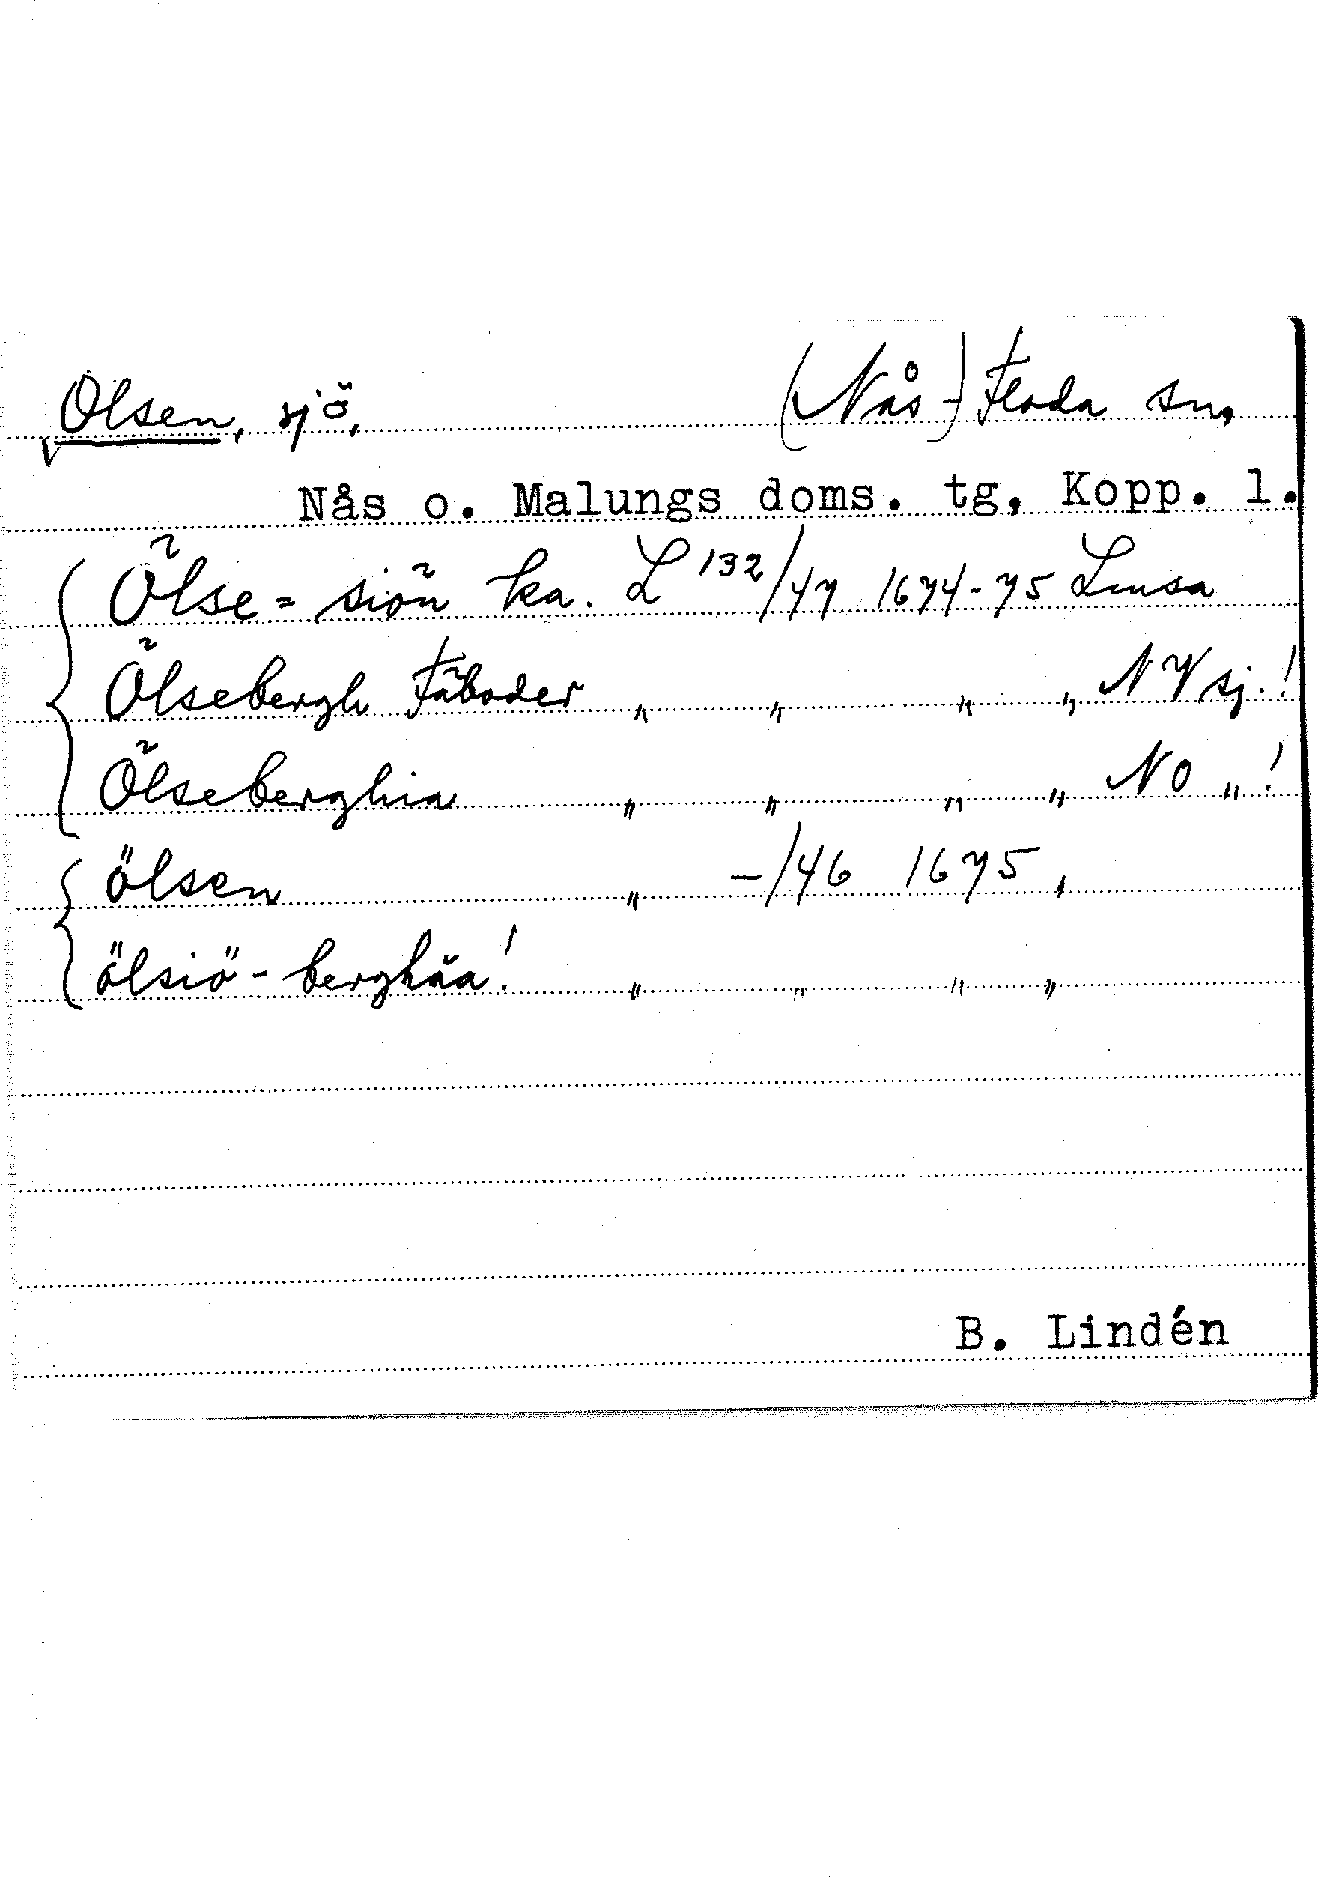 Olsen, sjö, (Nås-) Floda sn,
Nås o. Malungs doms. tg, Kopp. l.
Ölse = siön ka. L 132/47 1674-75 Lmsa
Ölsebergh Fäboder „ „ „ „ NV sj.!
Ölseberghia „ „ „ „ NO „!
ölsen „ -/46 1675 „
ölsiö-berghåa! „ „ „ „
B. Lindén